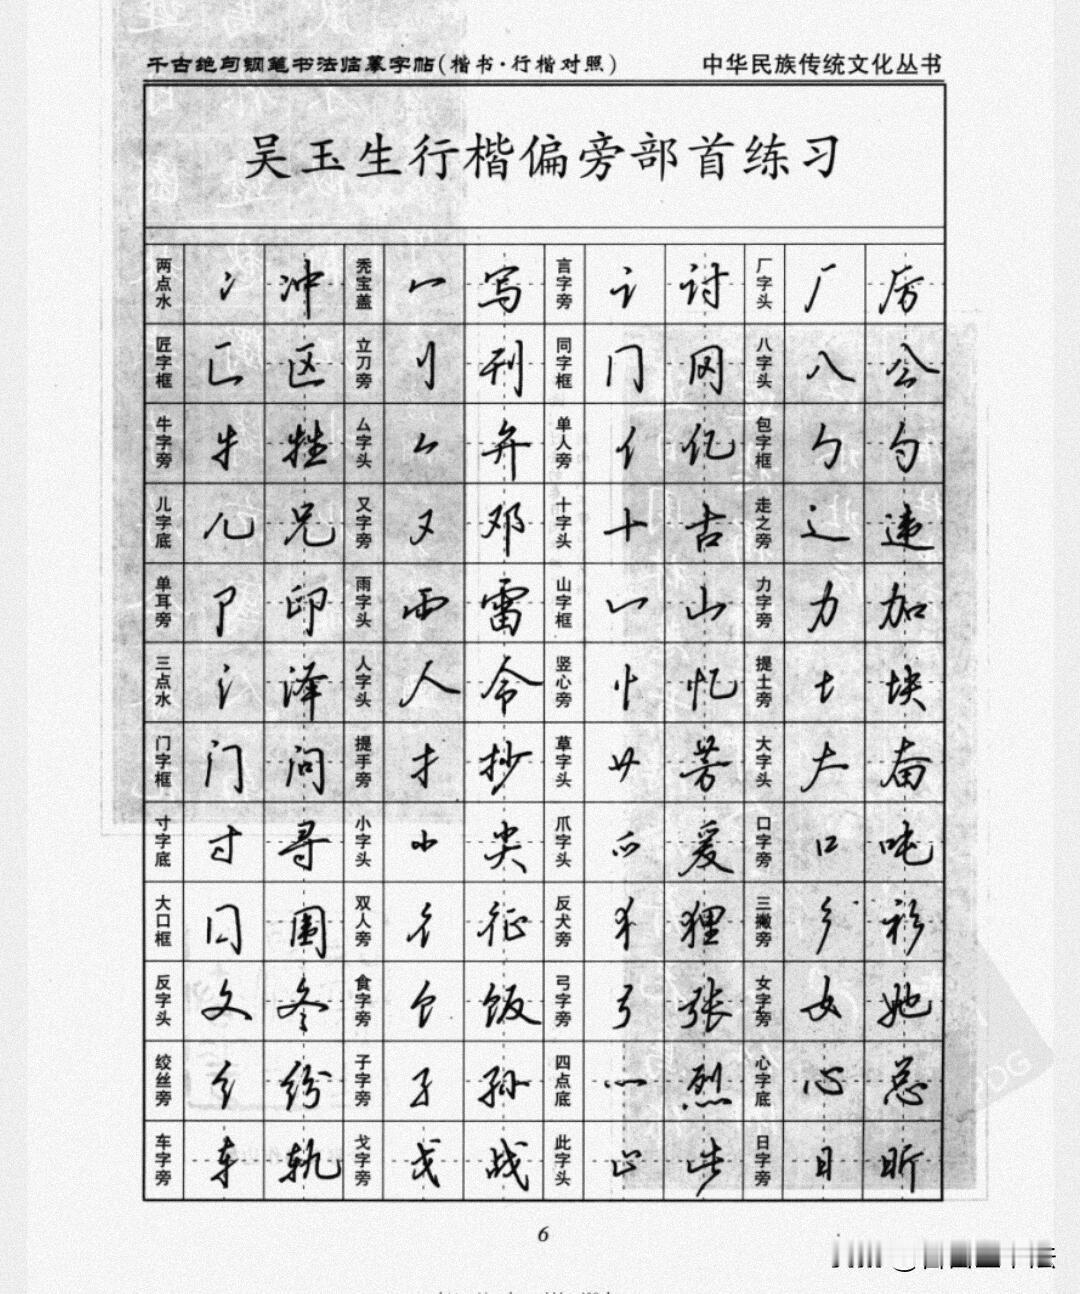 千古绝句钢笔书法临摹字帖(楷书·行楷对照) 中华民族传统文化丛书
吴玉生行楷偏旁部首练习
两点水 冫 冲 秃宝盖 冖 写 言字旁 讠 讨 厂字头 厂 厉
匠字框 匚 区 立刀旁 刂 刊 同字框 冂 网 八字头 八 会
牛字旁 牜 牲 厶字头 厶 弁 单人旁 亻 亿 包字框 勹 勺
儿字底 儿 兄 又字旁 又 邓 十字头 十 古 走之旁 辶 违
单耳旁 卩 印 雨字头 雨 雷 山字框 凵 山 力字旁 力 加
三点水 氵 泽 人字头 人 令 竖心旁 忄 忆 提土旁 土 块
门字框 门 问 提手旁 扌 抄 草字头 艹 芳 大字头 大 奋
寸字底 寸 寻 小字头 小 尖 爪字头 爫 爱 口字旁 口 吨
大口框 囗 围 双人旁 彳 征 反犬旁 犭 狸 三撇旁 彡 彩
反字头 夂 冬 食字旁 饣 饭 弓字旁 弓 张 女字旁 女 她
绞丝旁 纟 纷 子字旁 子 孙 四点底 灬 烈 心字底 心 总
车字旁 车 轨 戈字旁 戈 战 此字头 止 此 日字旁 日 昕
6